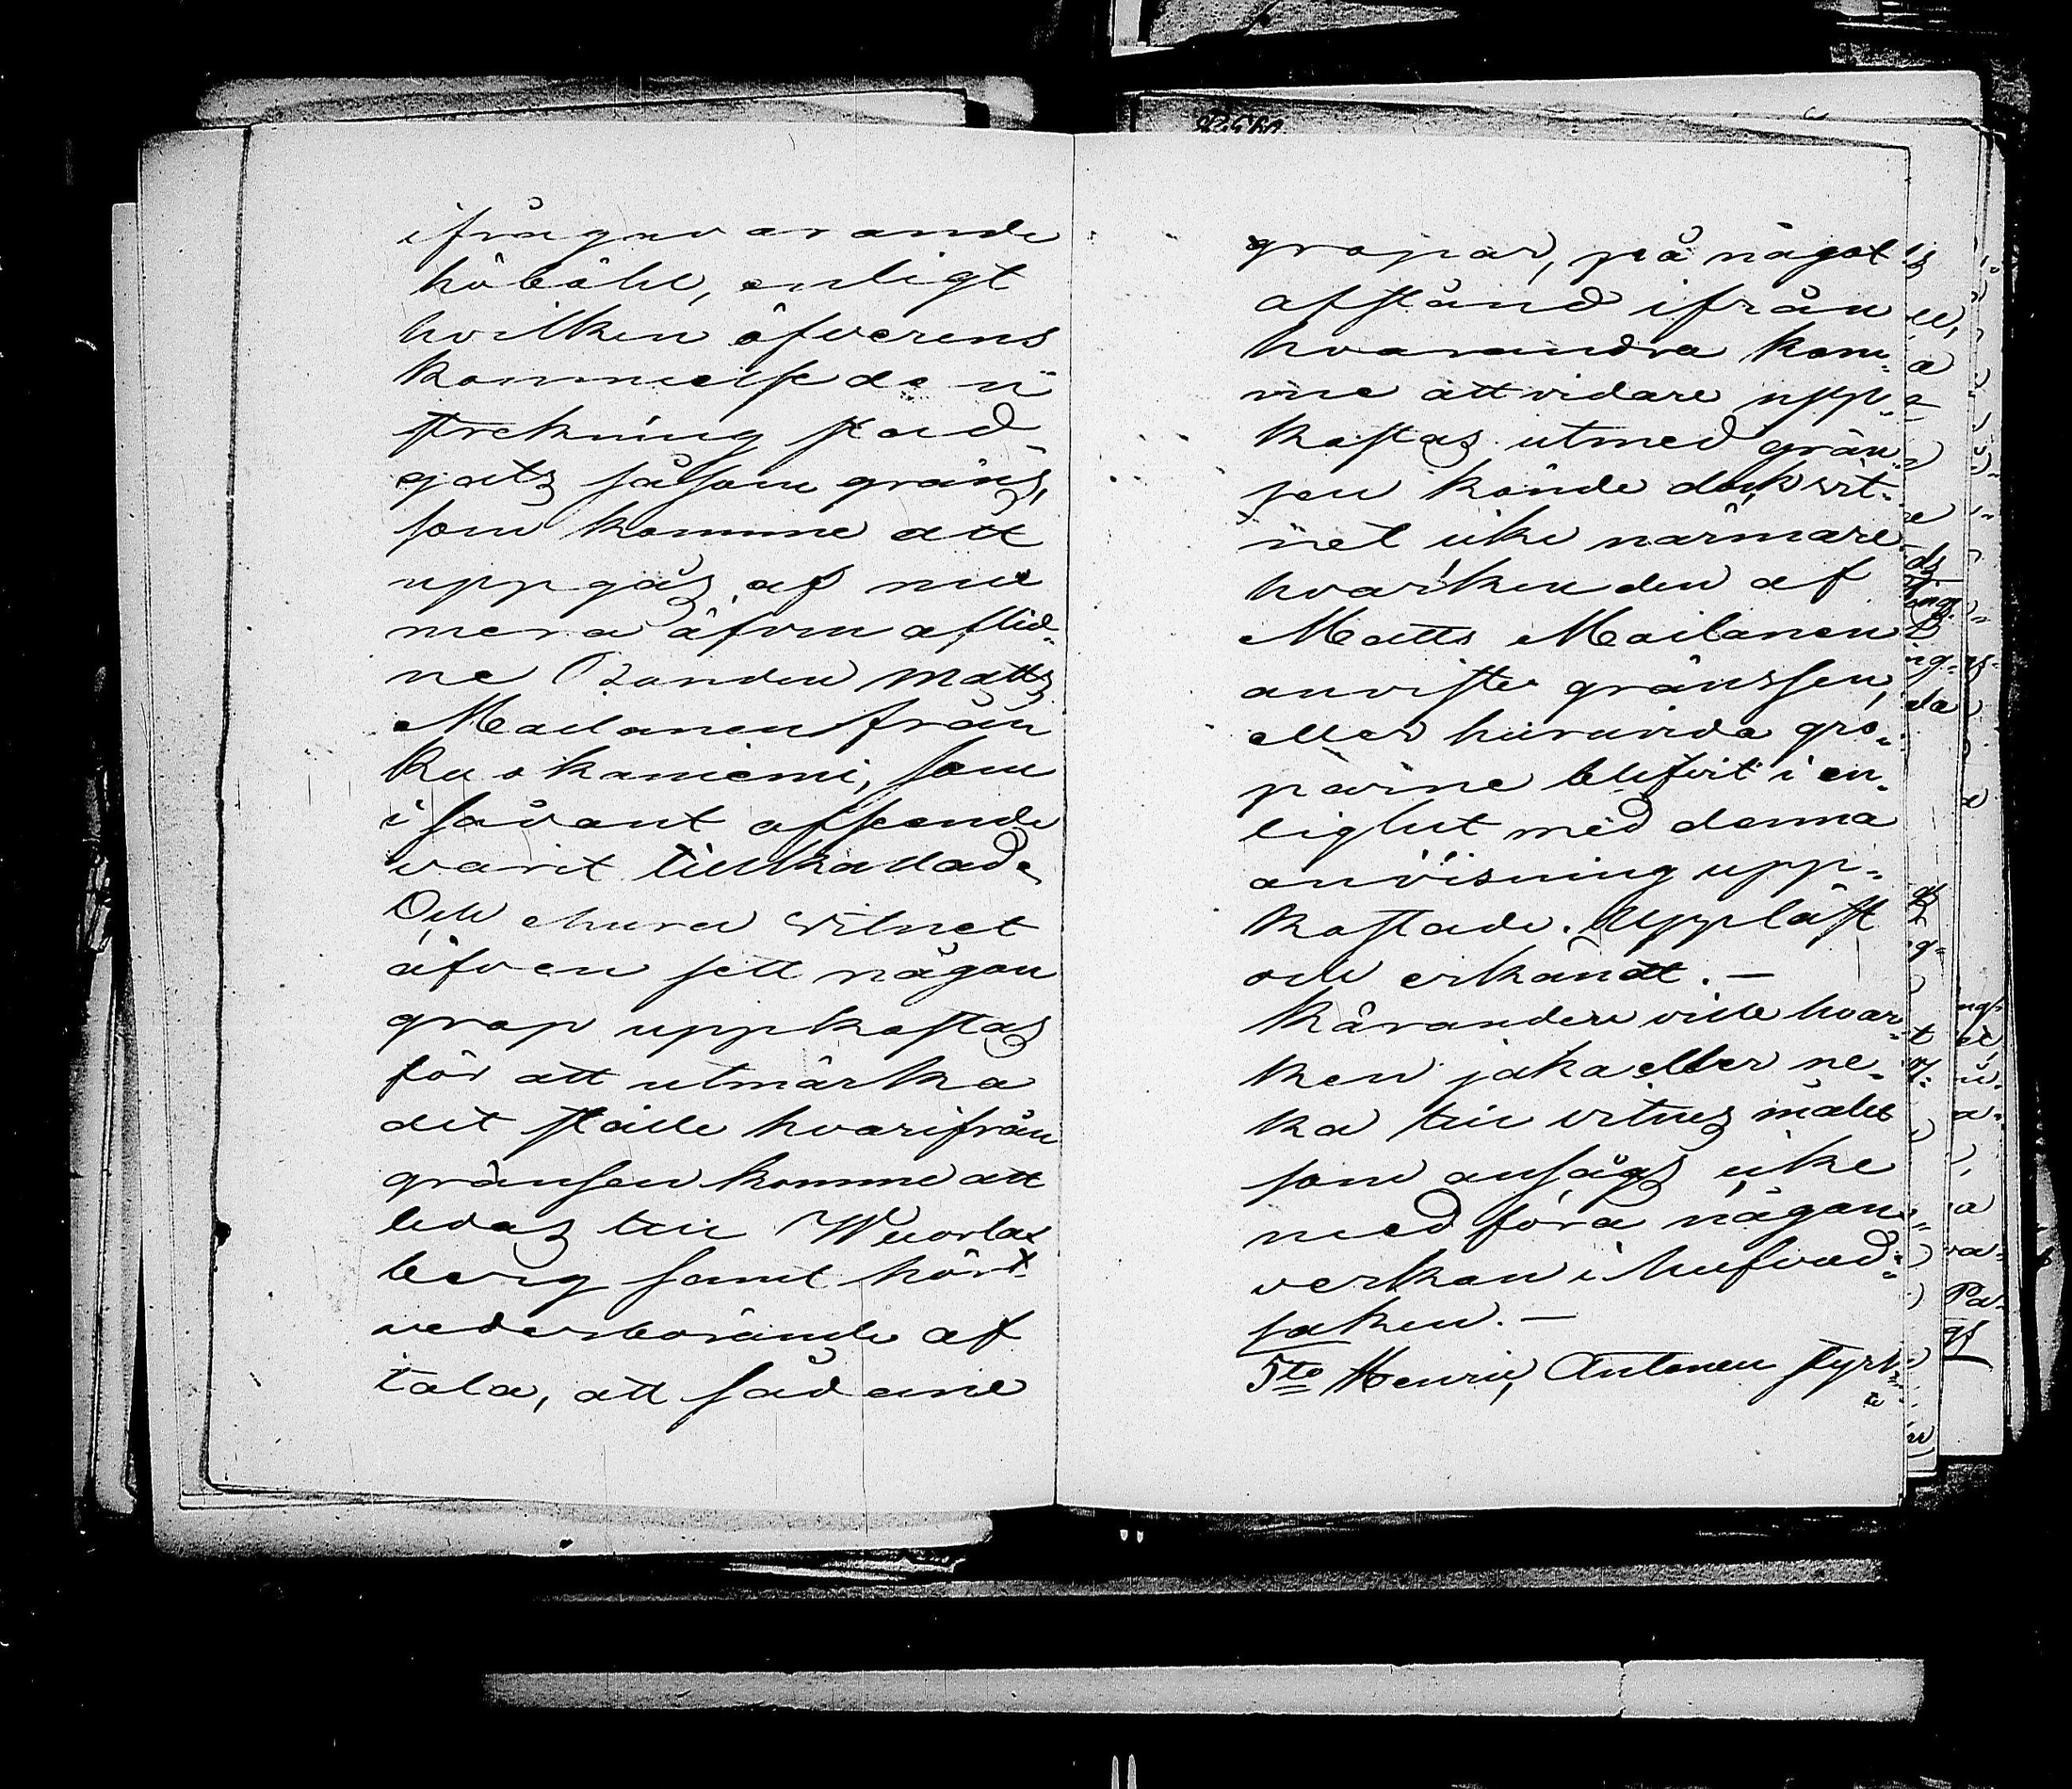 ifrågavarande
höböle, enligt
hvilken öfverens
kommelse de n
streckning stad¬
gats såsom gräns,
som komme att
uppgås af nu
mera äfven aflid¬
ne Bonden Matts
Mailanen från
Kuokaniemi, som
i sådant afseende
varit tillkallade.
Och ehuru vitnet
äfven sett någon
grop uppkastas
för att utmärka
det ställe hvarifrån
gränsen komme att
ledas till Wuorla
berg samt hört
vederbörande af
tala, att sådane
gropar, på något
afstånd ifrån
hvarandra kom¬
me att vidare upp¬
kastas utmed grän¬
sen kände dock vit¬
net icke närmare
hvarken den af
Matts Mailanen
anviste gränssen,
eller huruvida gro¬
parne blifvit i en¬
lighet med denna
anvisning upp¬
kastade. Uppläst
och erkändt. —
Kärandene ville hvar¬
ken jaka eller ne¬
ka till vitnes målet
som ansågs icke
medföra någon
verkan i hufvud¬
saken. —
5to Henric Antonen styrk¬
te